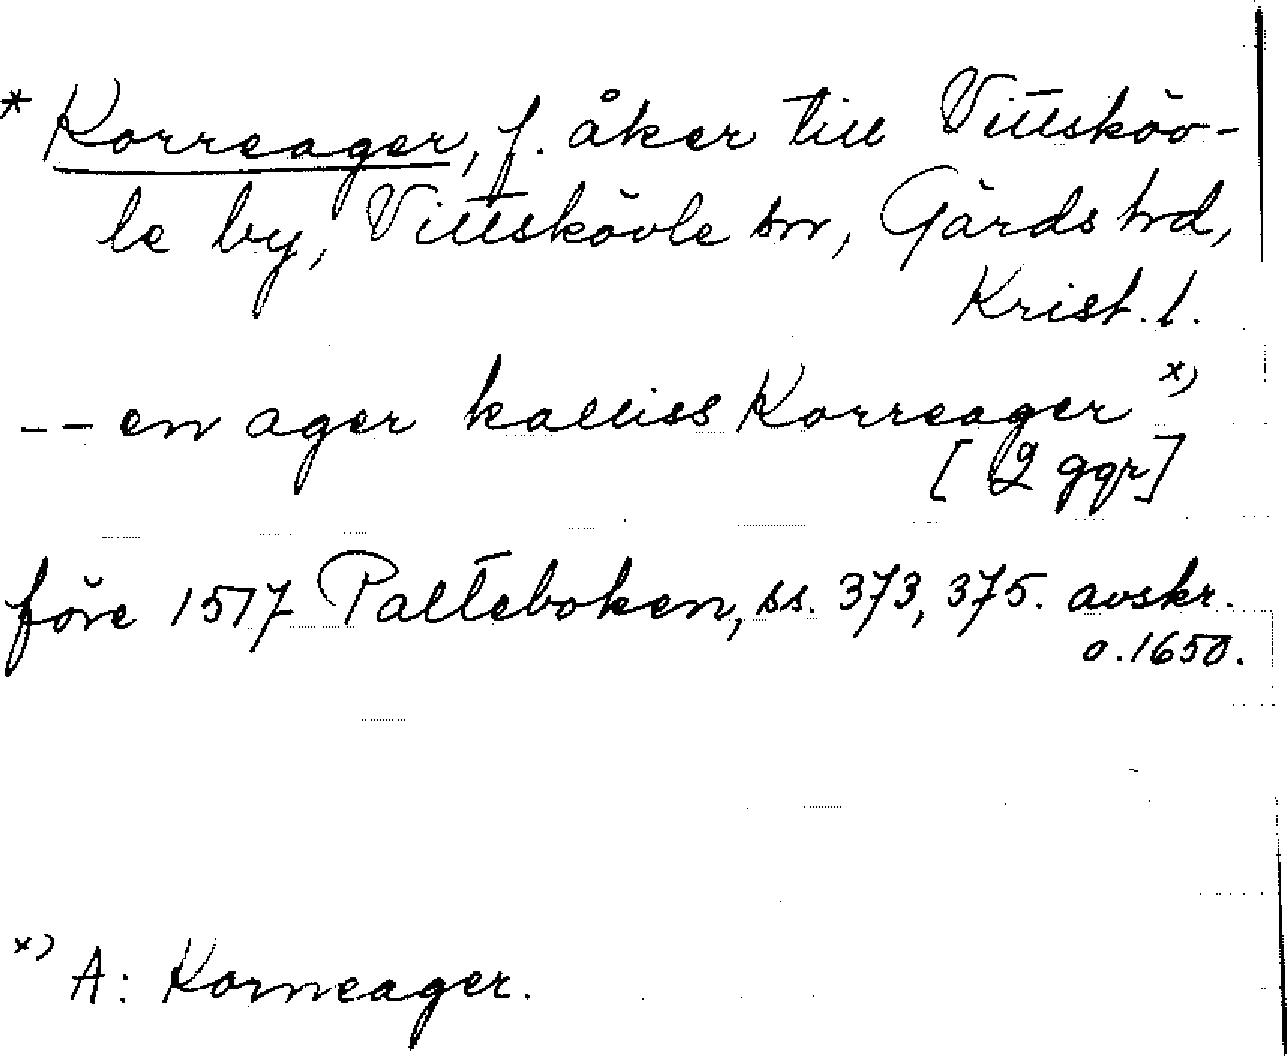 * Korreager, f. åker till Vittsköv-
le by, Vittskövle sn, Gärds hd,
Krist. l.
-- en ager kalliss Korreager x)
[2 ggr]
före 1517 Palteboken, ss. 373, 375. avskr.
o. 1650.
x) A: Korneager.